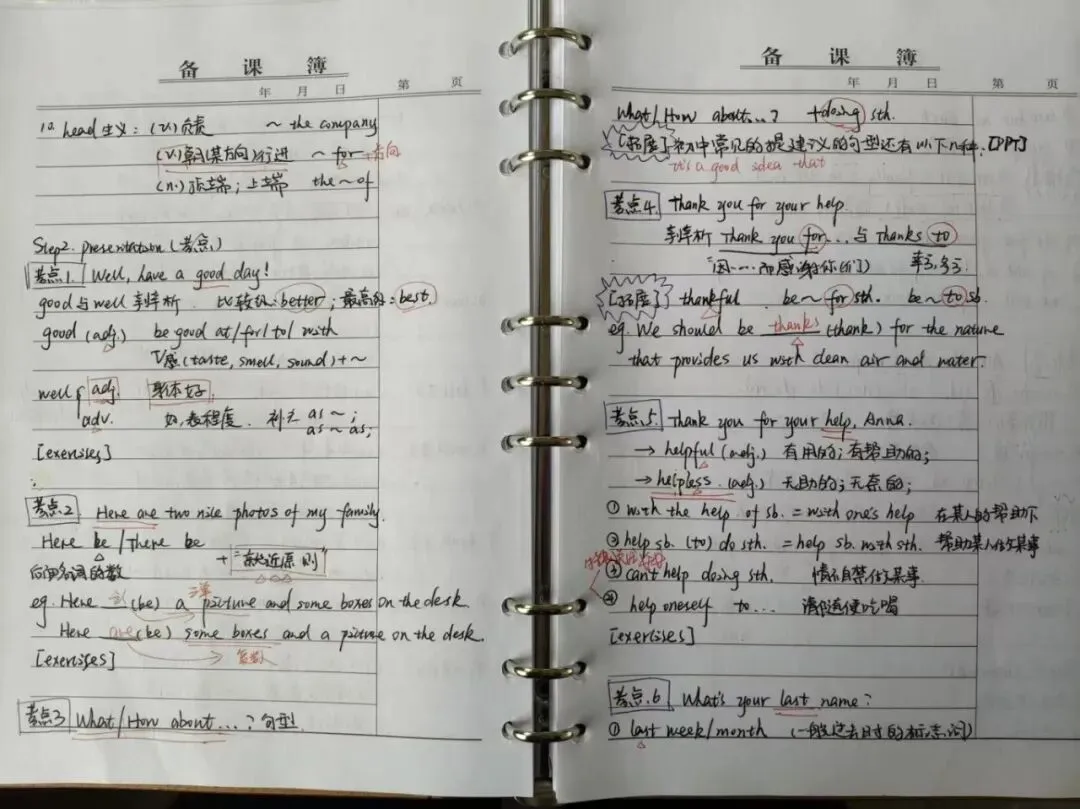 备 课 簿
年 月 日 第 页
12. head 主义: (v.) 负责 ~ the company
(v.) 朝(某方向)行进 ~ for +方向
(n.) 顶端; 上端 the ~ of
Step2. presentation (考点)
考点1. Well, have a good day!
good 与 well 辨析. 比较级: better; 最高级: best.
good (adj.) be good at/for/to/with
V感 (taste, smell, sound) + ~
well adj. 身体好
adv. 好, 表程度. 补充 as ~;
as ~ as;
[exercises]
考点2. Here are two nice photos of my family.
Here be / There be
+ "就近原则"
后面名词的数
单
eg. Here is (be) a picture and some boxes on the desk.
Here are (be) some boxes and a picture on the desk.
[exercises] 复数
考点3 What/How about...? 句型
备 课 簿
年 月 日 第 页
What/How about...? + doing sth.
[拓展] 初中常见的提建议的句型还有以下几种: [PPT]
it's a good idea that
考点4. Thank you for your help.
辨析 Thank you for... 与 Thanks to
"因……而感谢你(们)" 幸亏, 多亏
[拓展] thankful be ~ for sth. be ~ to sb.
eg. We should be thanks (thank) for the nature
that provides us with clean air and water.
考点.5 Thank you for your help, Anna.
→ helpful (adj.) 有用的; 有帮助的;
→ helpless (adj.) 无助的; 无奈的;
① with the help of sb. = with one's help 在某人的帮助下
② help sb. (to) do sth. = help sb. with sth. 帮助某人做某事
③ can't help doing sth. 情不自禁做某事.
④ help oneself to... 请随便吃喝
[exercises]
考点.6 What's your last name?
① last week/month (一般过去时的标志词)